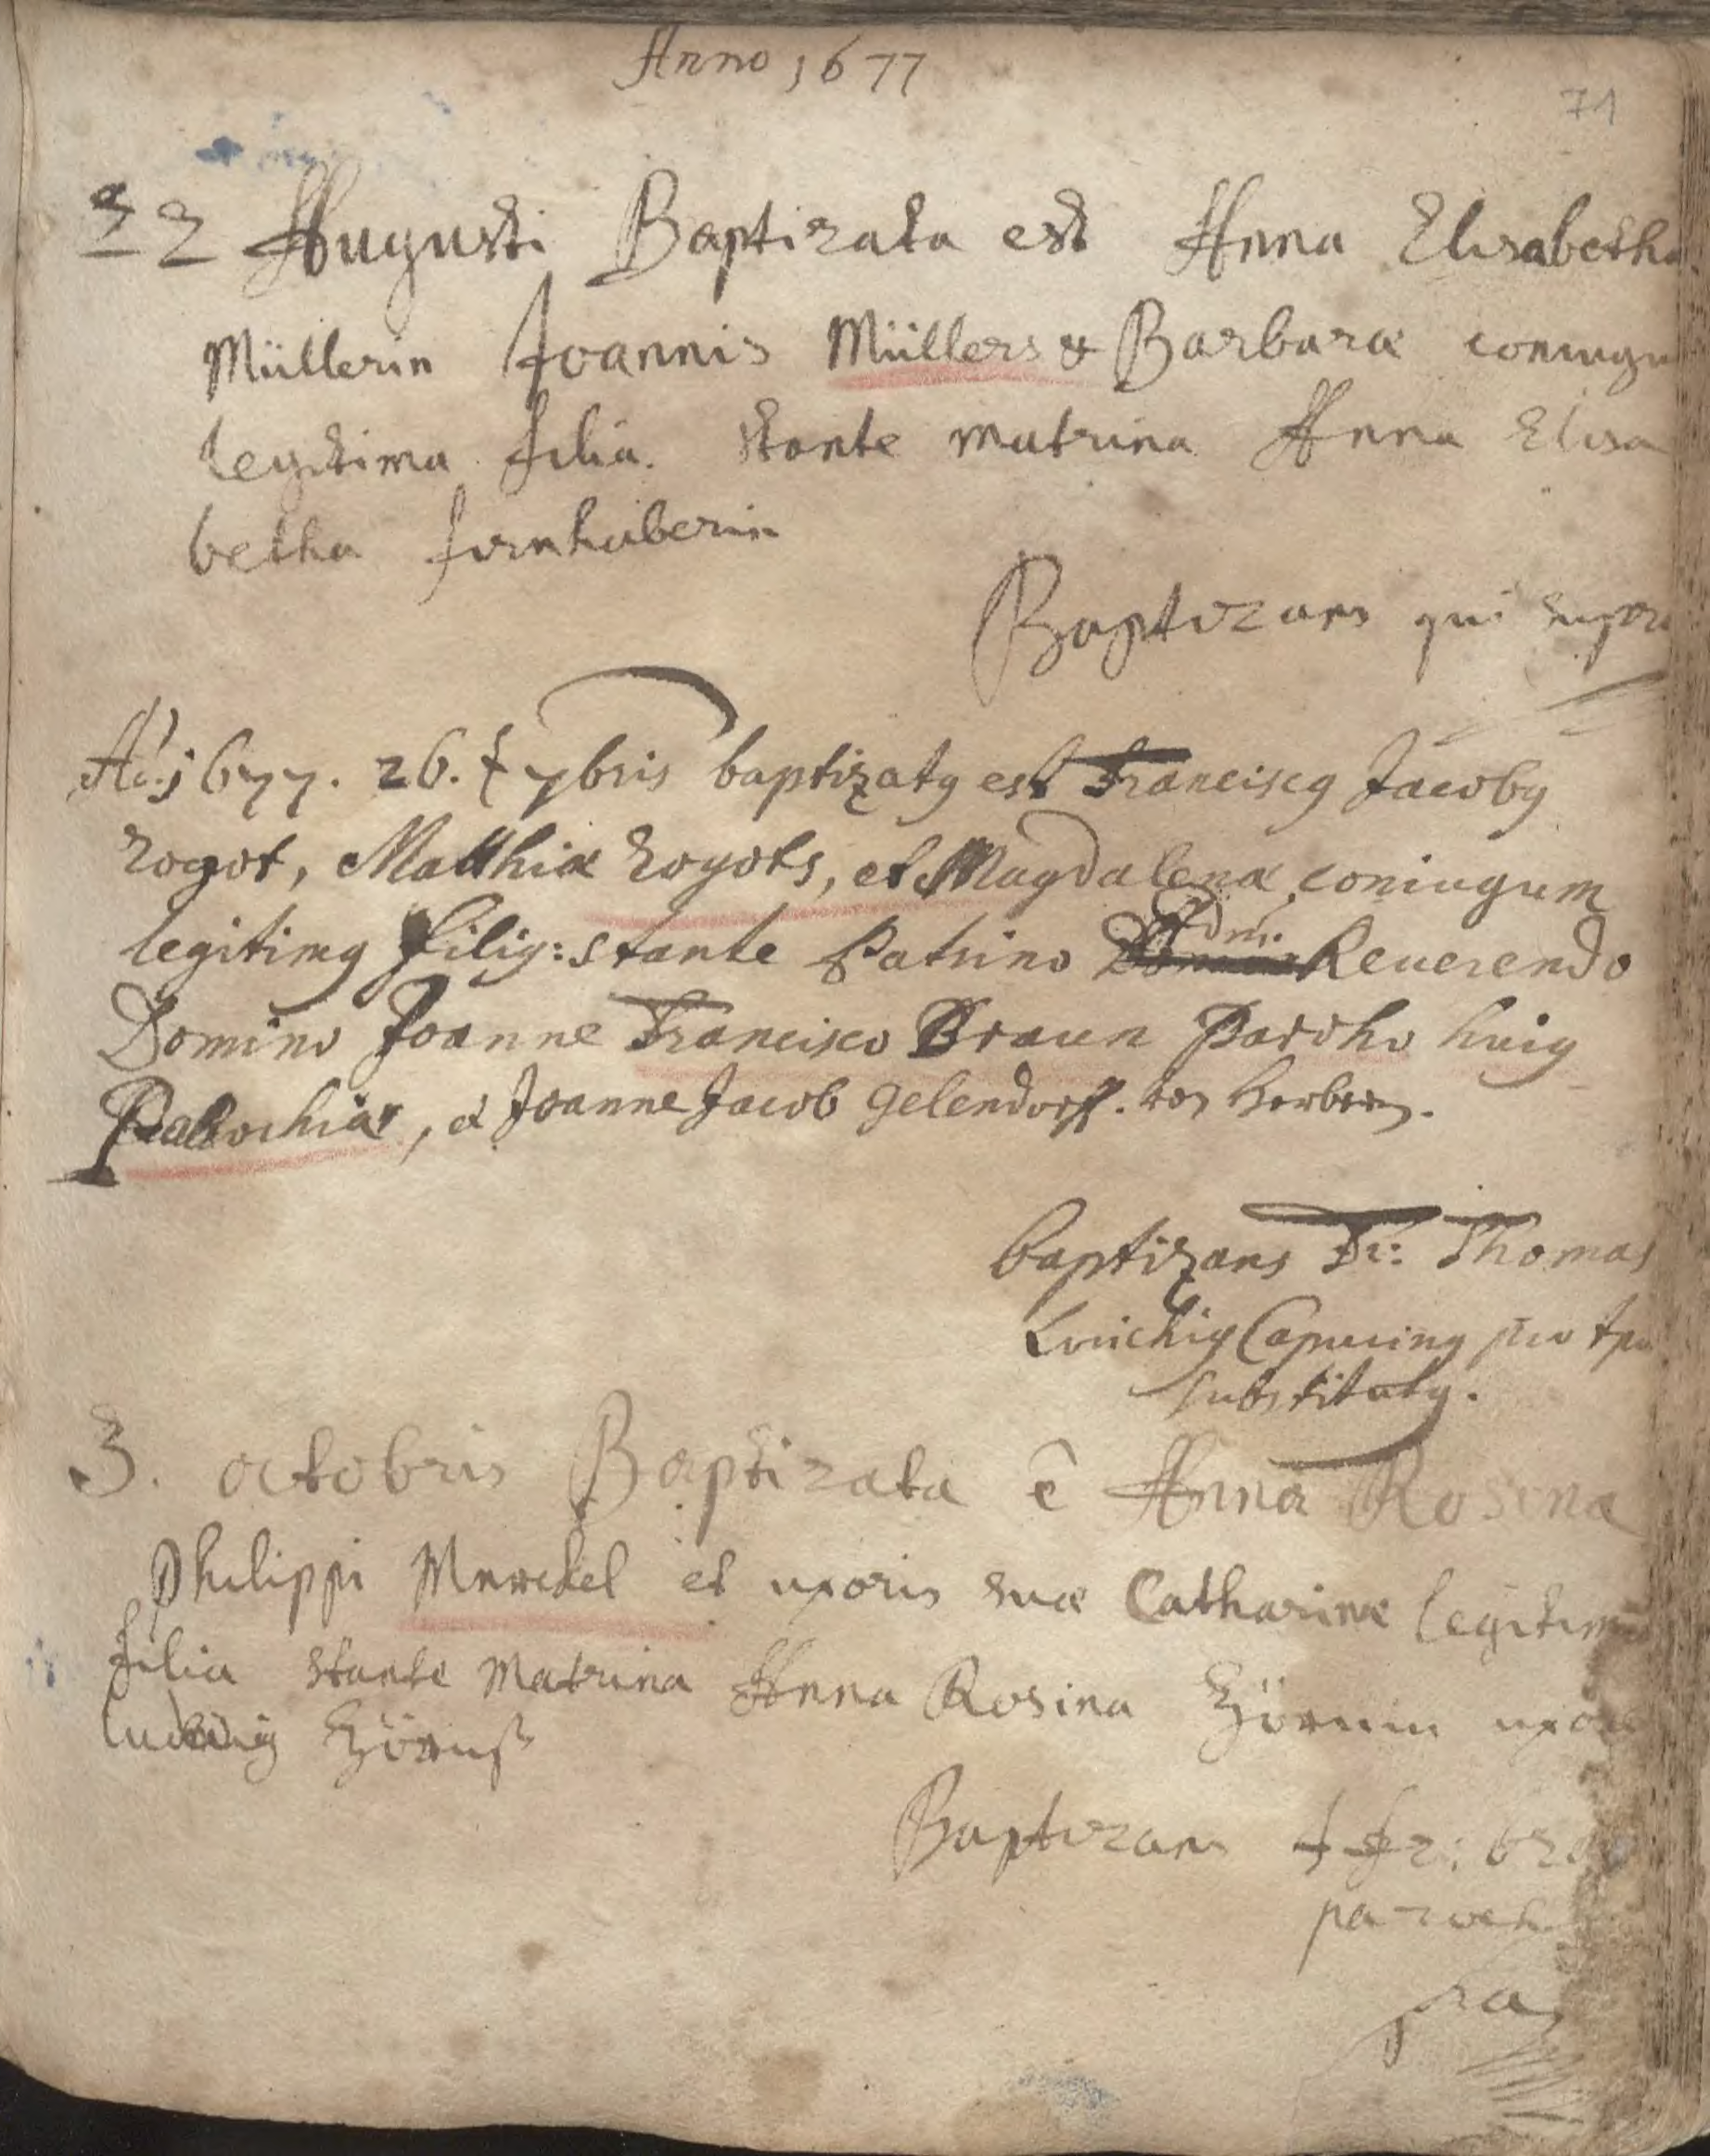 Anno 1677
71
22 Augusti Baptizata est Anna Elisabetha
Müllerin Joannis Müllers & Barbaræ coniugu
legitima filia. stante matrina Anna Elisa
betha
Baptizans qui supra
Ao. 1677. 26. 7bris baptizatg est Franciscg Jacobg
Matthiæ et Magdalenæ coniugum
legitimg filig: stante Patrino Adm. Reuerendo
Domino Joanne Francisco Braun Parocho huig
Parochiæ, & Joanne Jacob gelendorff. von
baptizans Fr: Thomas
Capucing pro tpr
substitutg.
3. octobris Baptizata ē Anna Rosina
Philippi Merckel et uxoris suæ Catharinæ legitima
filia stante Matrina Anna Rosina uxore
ludwig
Baptizans